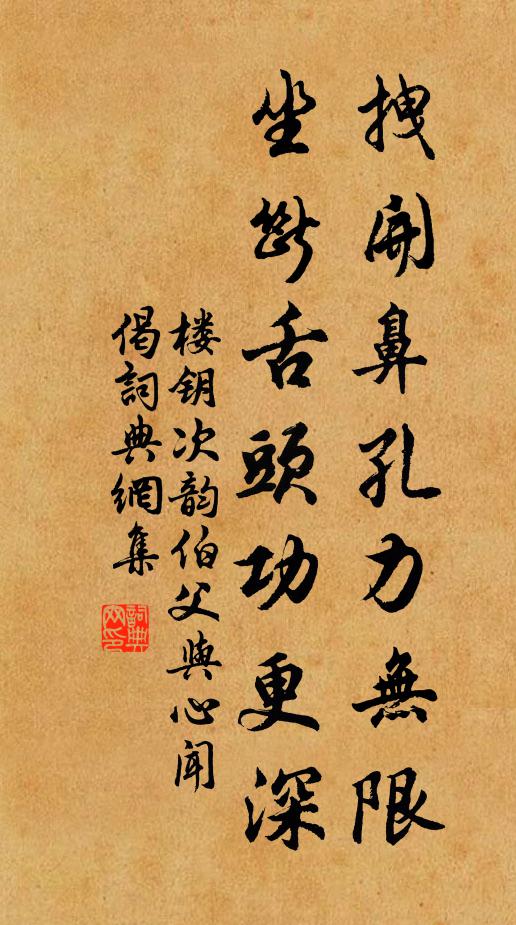 拽開鼻孔力無限
坐斷舌頭功更深
楼钥次韵伯父與心聞
偈詞典網集
詞典网印